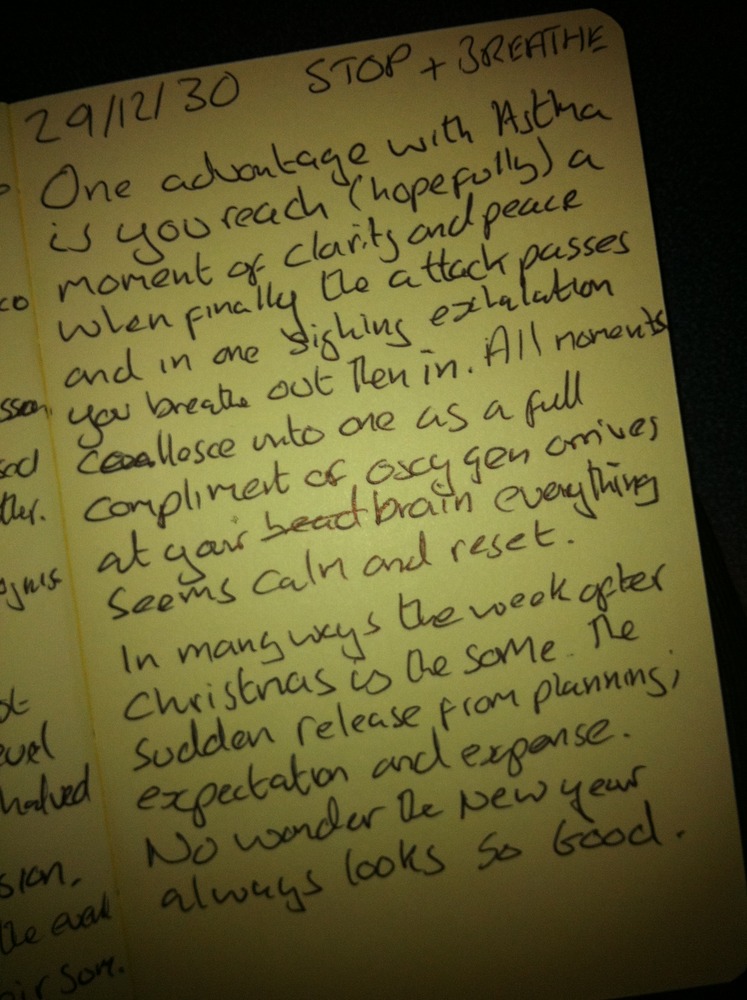 29/12/30 STOP + BREATHE
One advantage with Astma
is you reach (hopefully) a
moment of clarity and peace
when finally the attack passes
and in one sighing exhalation
you breathe out then in. All moments
coallosce into one as a full
compliment of oxcygen arrives
at your head brain everything
seems calm and reset.
In many ways the week after
Christmas is the same. The
sudden release from planning,
expectation and expense.
No wonder the New year
always looks so Good.
co
sson.
sed
ther.
evel
halved
sion,
the even